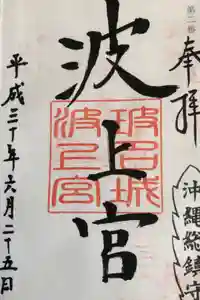 奉拝
沖縄総鎮守
波上宮
波上宮
平成三十年六月二十五日